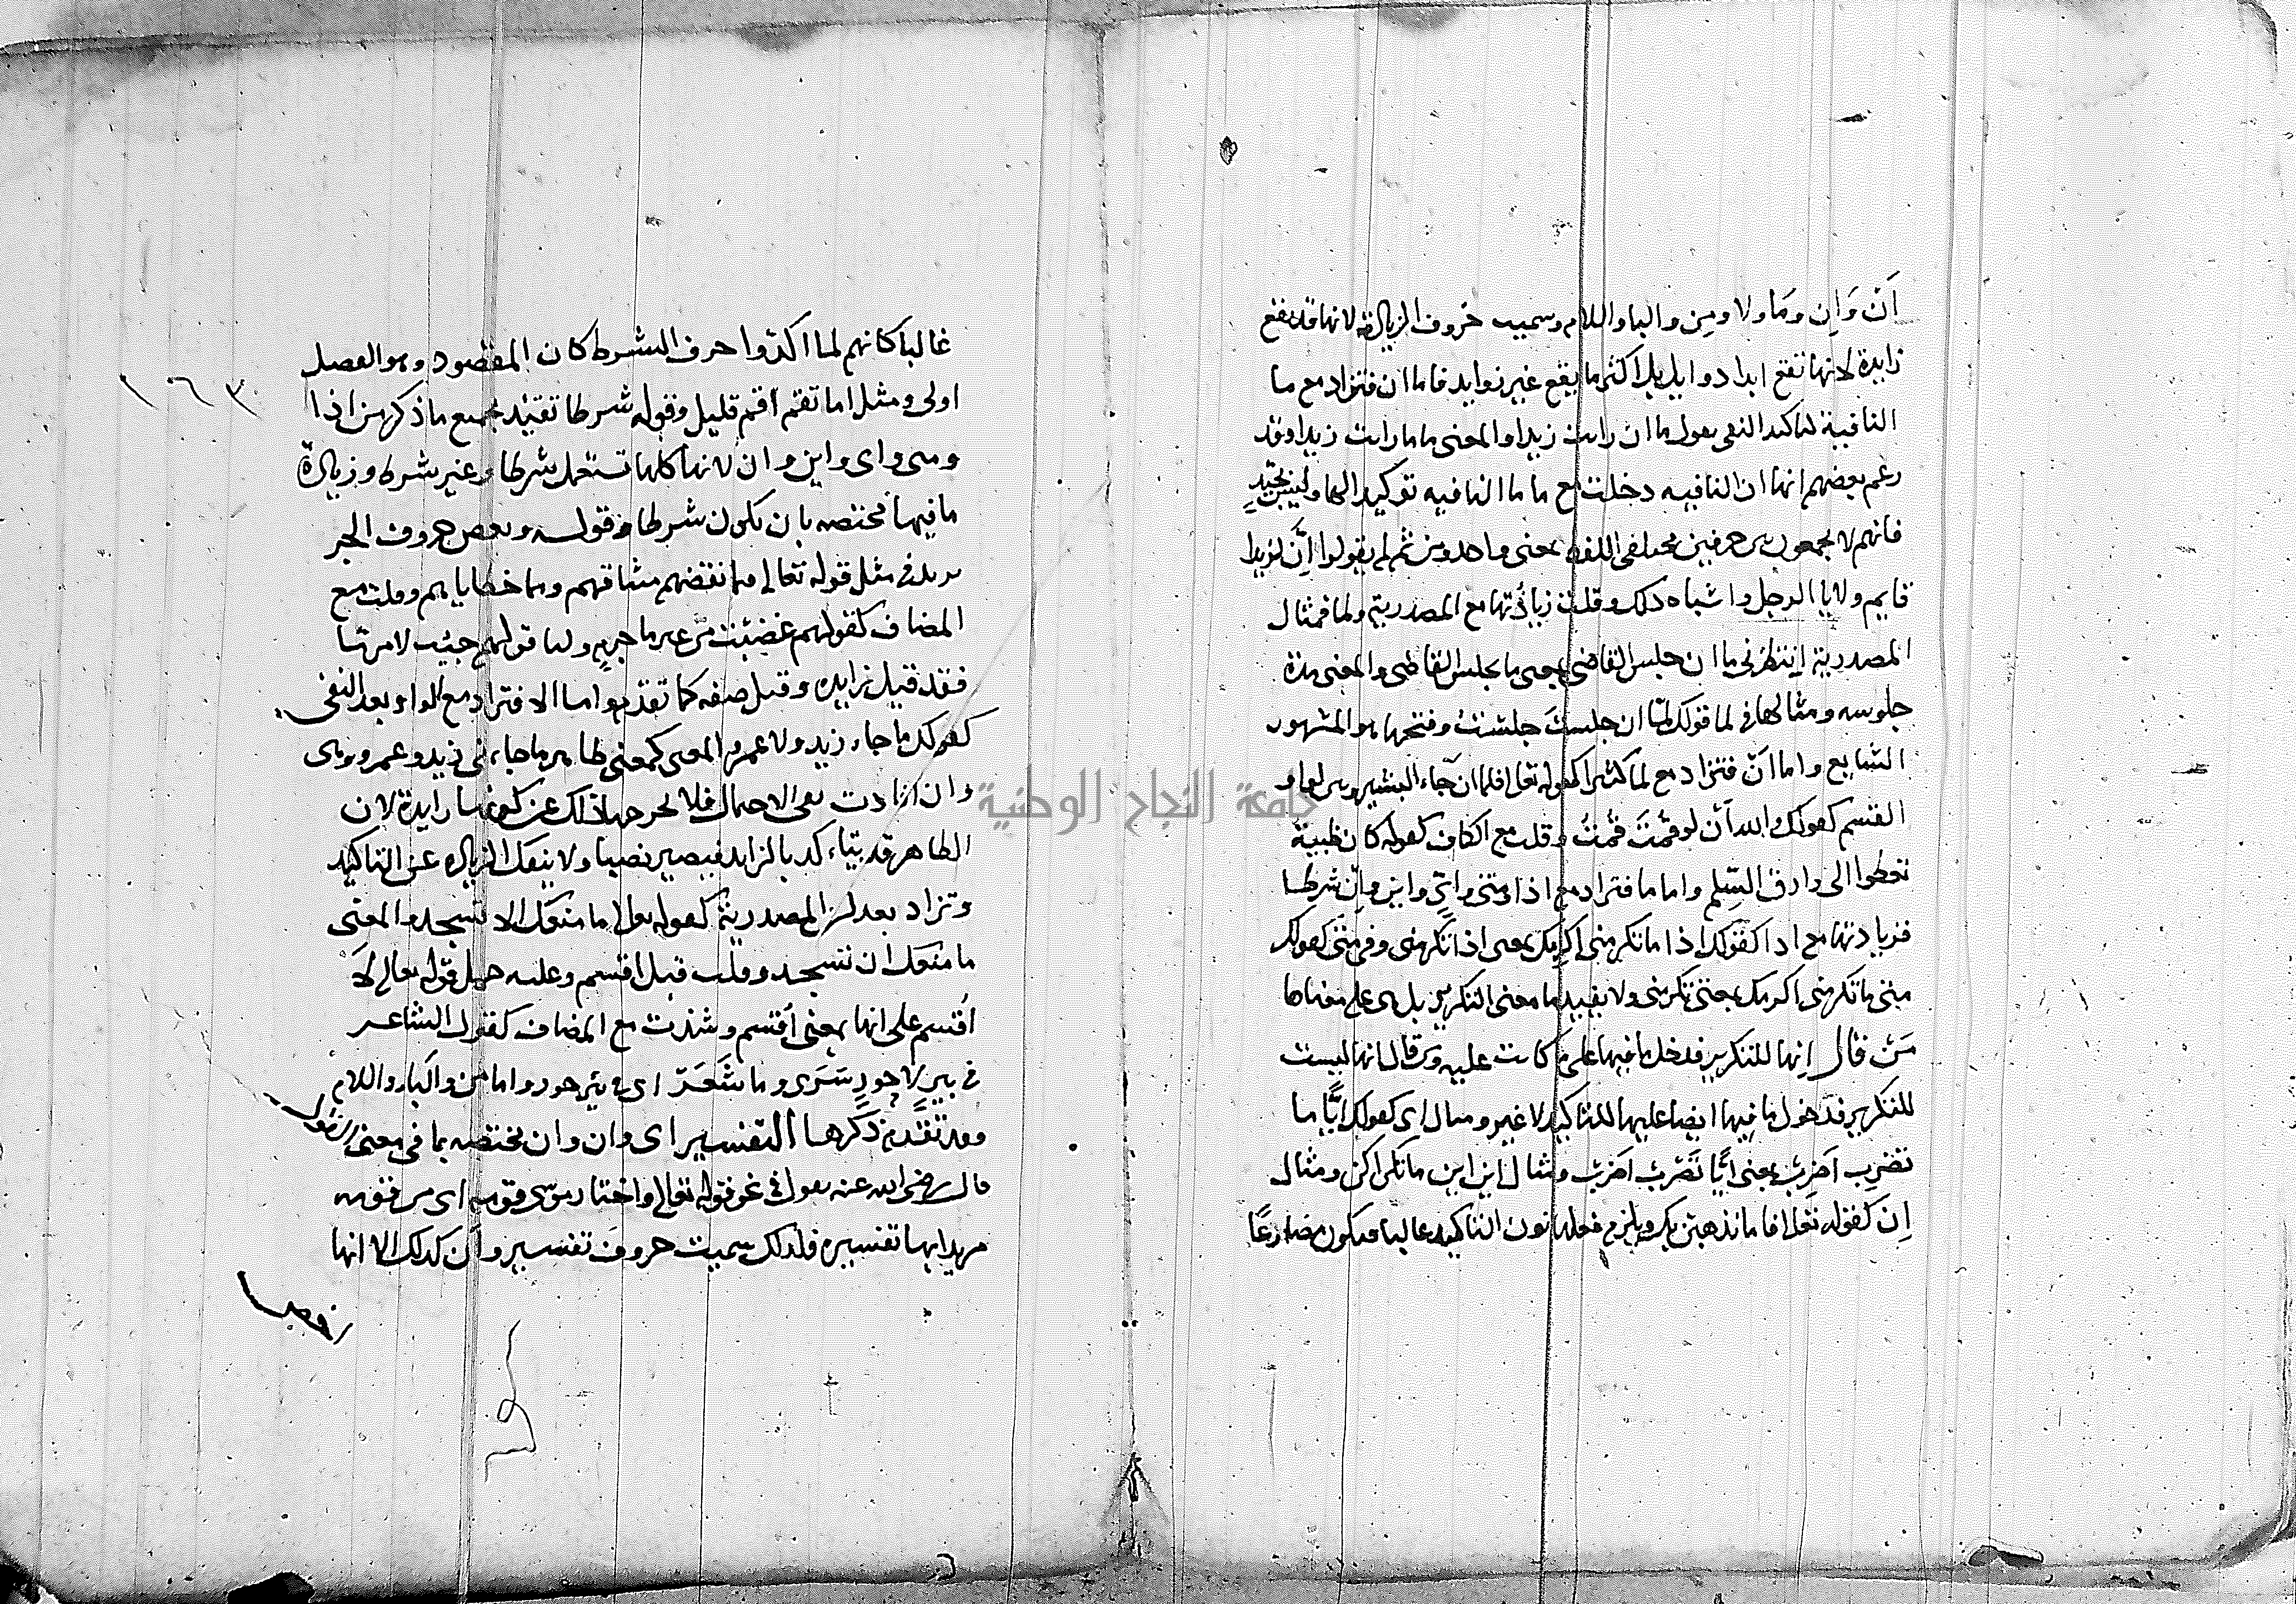 اَنْ وَاِن وَمَا ولا ومِن والبا واللام وسميت حروف الزيادة لانها قد تقع
زايدة لا نها تقع ابدا دوايد بل اكثر ما يقع غير زوايد فاما ان فتزاد مع ما
النافية لتاكيد النفى تقول ما ان رايت زيدا والمعنى ما رايت زيدا وقد
زعم بعضهم انها ان النافيه دخلت مع ما النافيه توكيدا لها وليس بجيّد
فانهم لا يجمعون بين حرفين مختلفى اللفظ بمعنى واحد ومن ثم لم يقولوا اِنَّ لزيدا
قايم ولا يا الرجل واشباه ذلك وقلت زيادتها مع المصدرية ولما فمثال
المصدرية انتظرنى ما ان جلس القاضى بمعنى ما يجلس القاضى والمعنى مدة
جلوسه ومثالها فى لما قولك لمّا ان جلستَ جلستُ وفتحها هو المشهور
الشايع واما اَنْ فتزاد مع لما كثيرا كقوله تعالى فلما ان جاء البشير وبين لو او
القسم كقولك والله اَنْ لو قمتَ قمتُ وقلت مع الكاف كقوله كان ظبية
تعطوا الى وارق السّلم واما ما فتزاد مع اذا ومتى واىّ واين واِنْ شرطا
فزيادتها مع اذا كقولك اذا ما تكرمنى اكرمك بمعنى اذا تكرمنى وفى متى كقولك
متى ما تكرمنى اكرمك بمعنى متى تكرمنى ولا يفيد ما معنى التكرير بل هى على معناها
مَنْ قال اِنها للتكرير فدخل ما فيها على ما كانت عليه ومن قال انها ليست
للتكرير فدخول ما فيها ايضا عليها للتاكيد لا غير ومثال اى كقولك ايًّا ما
تضرب اضرب بمعنى ايًّا تضرب اضرب ومثال اين اين ما تكن اكن ومثال
اِن كقوله تعالى فاما نذهبن بك ويلزم فعلها نون التاكيد غالبا فيكون مضارعًا
غالبا كانهم لما اكدوا حرف الشرط كان المقصود وهو الفعل
اولى ومثل اما تقم اقم قليل وقوله شرطا تقييد لجميع ما ذكر من اذا
ومتى واى واين وان لانها كلها تستعمل شرطا وغير شرط وزيادة
ما فيها مختصه بان يكون شرطا وقوله وبعض حروف الجر
يريد فى مثل قوله تعالى فبما نقضهم ميثاقهم ومما خطاياهم وقلت مع
المضاف كقولهم غضبت من غير ما جرمٍ ولما قولهم جيت لامر ما
فقد قيل زايده وقيل صفه كما تقدم واما لا فتزاد مع الواو بعد النفى
كقولك ما جاء زيد ولا عمرو المعنى كمعنى ما جاءنى زيد وعمرو وهى
وان افادت نفى الاحتمال فلا يخرجها ذلك عن كونها زايدة لان
الظاهر قد يتاكد بالزايد فيصير نصبا ولا ينفك الزياده عن التاكيد
وتزاد بعد ان المصدرية كقوله تعالى ما منعك الا تسجد والمعنى
ما منعك ان تسجد وقلت قبل اقسم وعليه حمل قوله تعالى لا
اُقسم على انها بمعنى اُقسم وشذت مع المضاف كقول الشاعر
فى بير لا حورٍ سَرَى وما شَعَرْ اى فى بير حور واما من والباء واللام
وقد تقدم ذكرها التفسير اى وان وان مختصه بما فى معنى القول
قال رضى الله عنه تقول فى نحو قوله تعالى واختار موسى قومه اى من قومه
مريدا بها تفسيره فلذلك سميت حروف تفسير واَن كذلك الا انها
١٦٣